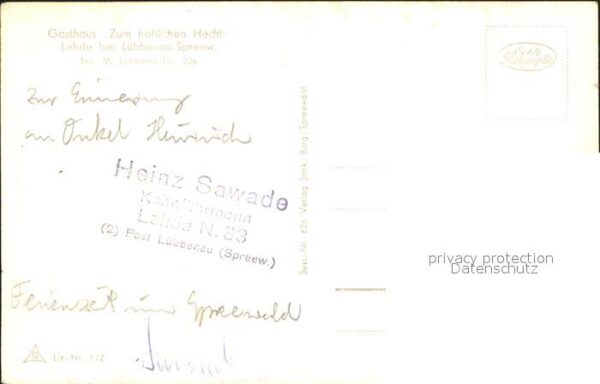 Gasthaus „Zum fröhlichen Hecht“
Lehde bei Lübbenau Spreew.
Bes. M. Lehmann Tel. 226
Zur Erinnerung
an Onkel Heinrich
Heinz Sawade
Kahnfährmann
Lehde N. 33
(2) Post Lübbenau (Spreew.)
Ferienzeit im Spreewald
Liz.-Nr. 172
Best.-Nr. 626 Verlag Jank, Burg, Spreewald
Echte
Photographie
privacy protection
Datenschutz